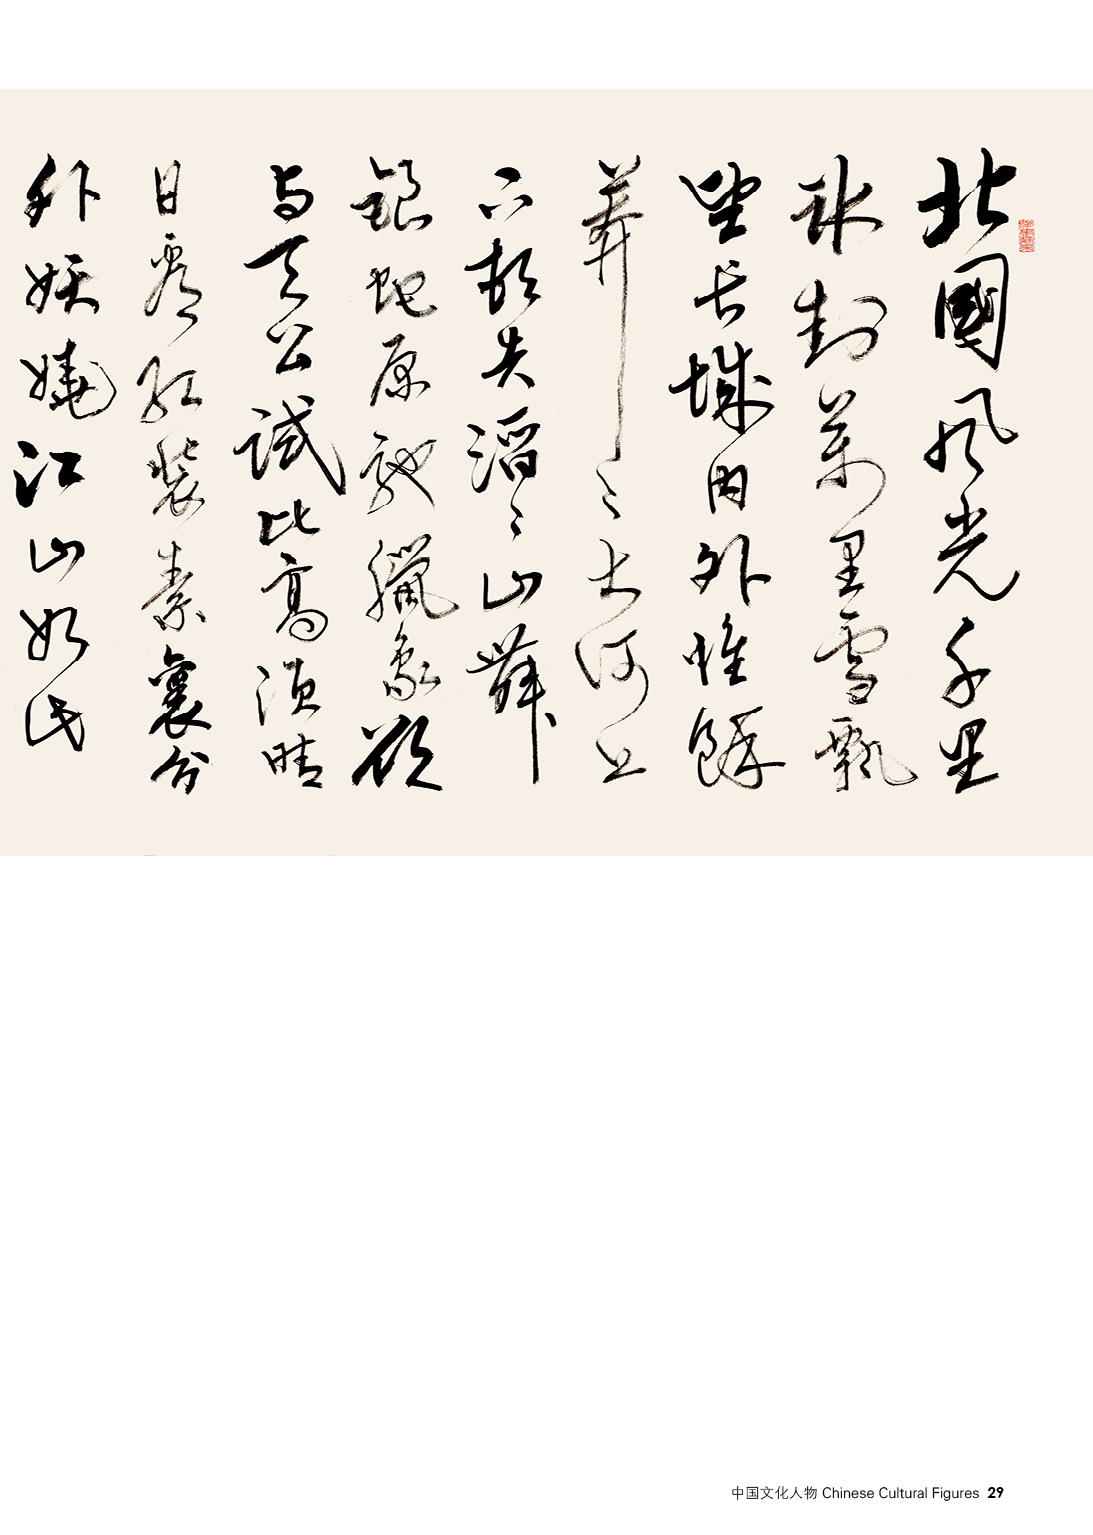 北國风光千里
冰封萬里雪飄
望长城内外惟餘
莽〻大河上
下頓失滔〻山舞
銀蛇原馳臘象欲
与天公試比高須晴
日看红装素裹分
外妖娆江山如此
中国文化人物 Chinese Cultural Figures 29